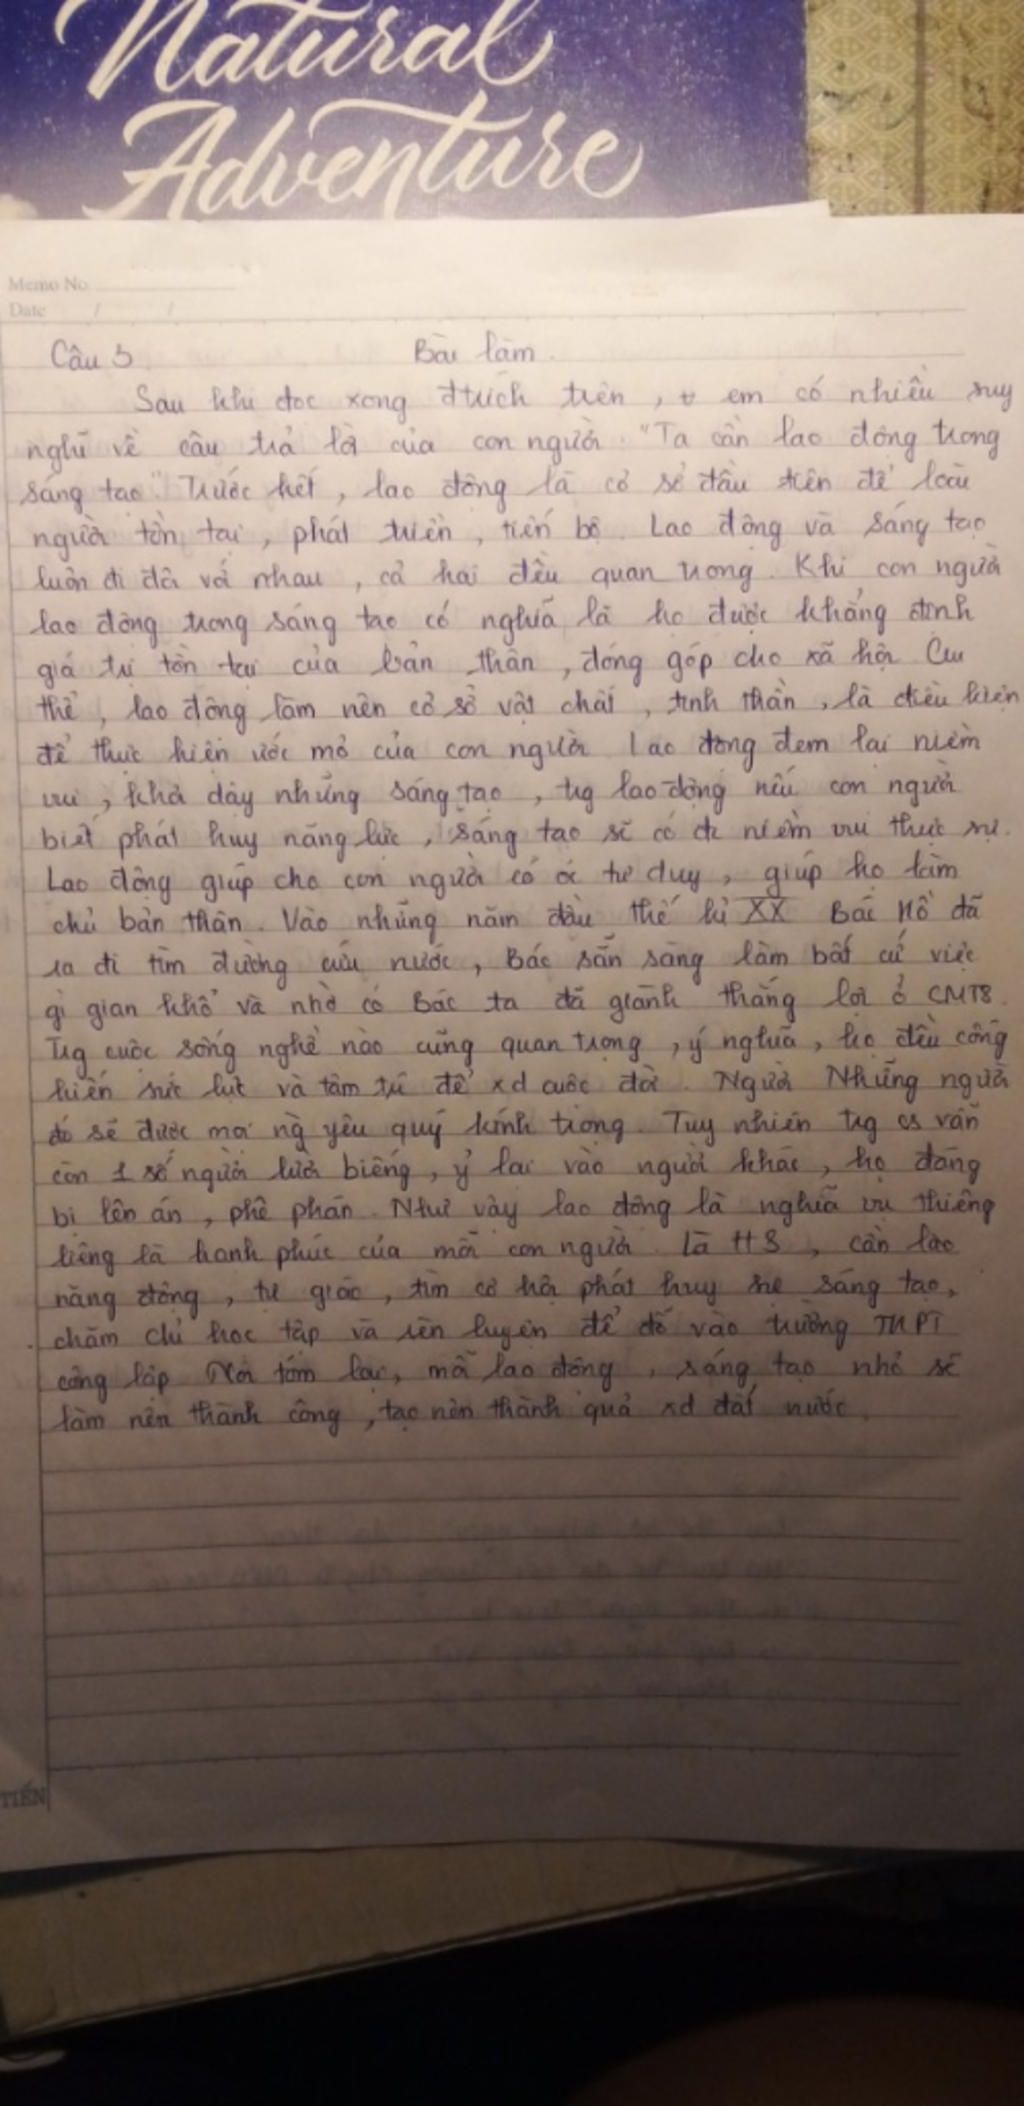 Natural
Adventure
Memo No.
Date / /
Câu 3 Bài làm.
Sau khi đọc xong đtrích trên, em có nhiều suy
nghĩ về câu trả lời của con người: "Ta cần lao động trong
sáng tạo". Trước hết, lao động là cơ sở đầu tiên để loài
người tồn tại, phát triển, tiến bộ. Lao động và sáng tạo
luôn đi đôi với nhau, cả hai đều quan trọng. Khi con người
lao động trong sáng tạo có nghĩa là họ được khẳng định
giá trị tồn tại của bản thân, đóng góp cho xã hội. Cụ
thể, lao động làm nên cơ sở vật chất, tinh thần, là điều kiện
để thực hiện ước mơ của con người. Lao động đem lại niềm
vui, khơi dậy những sáng tạo, trg lao động nếu con người
biết phát huy năng lực, sáng tạo sẽ có đc niềm vui thực sự.
Lao động giúp cho con người có tư duy, giúp họ làm
chủ bản thân. Vào những năm đầu thế kỉ XX Bác Hồ đã
ra đi tìm đường cứu nước, Bác sẵn sàng làm bất cứ việc
gì gian khổ và nhờ có Bác ta đã giành thắng lợi ở CMT8.
Trg cuộc sống nghề nào cũng quan trọng, ý nghĩa, họ đều cống
hiến sức lực và tâm trí để xd cuộc đời. Người Những người
đó sẽ được mọi ng yêu quý kính trọng. Tuy nhiên trg cs vẫn
còn 1 số người lười biếng, ỷ lại vào người khác, họ đáng
bị lên án, phê phán. Như vậy lao động là nghĩa vụ thiêng
liêng là hạnh phúc của mỗi con người. Là HS, cần lao
năng động, tự giác, tìm cơ hội phát huy sự sáng tạo,
chăm chỉ học tập và rèn luyện để đỗ vào trường THPT
công lập. Nói tóm lại, mỗi lao động, sáng tạo nhỏ sẽ
làm nên thành công, tạo nên thành quả xd đất nước.
TIẾN